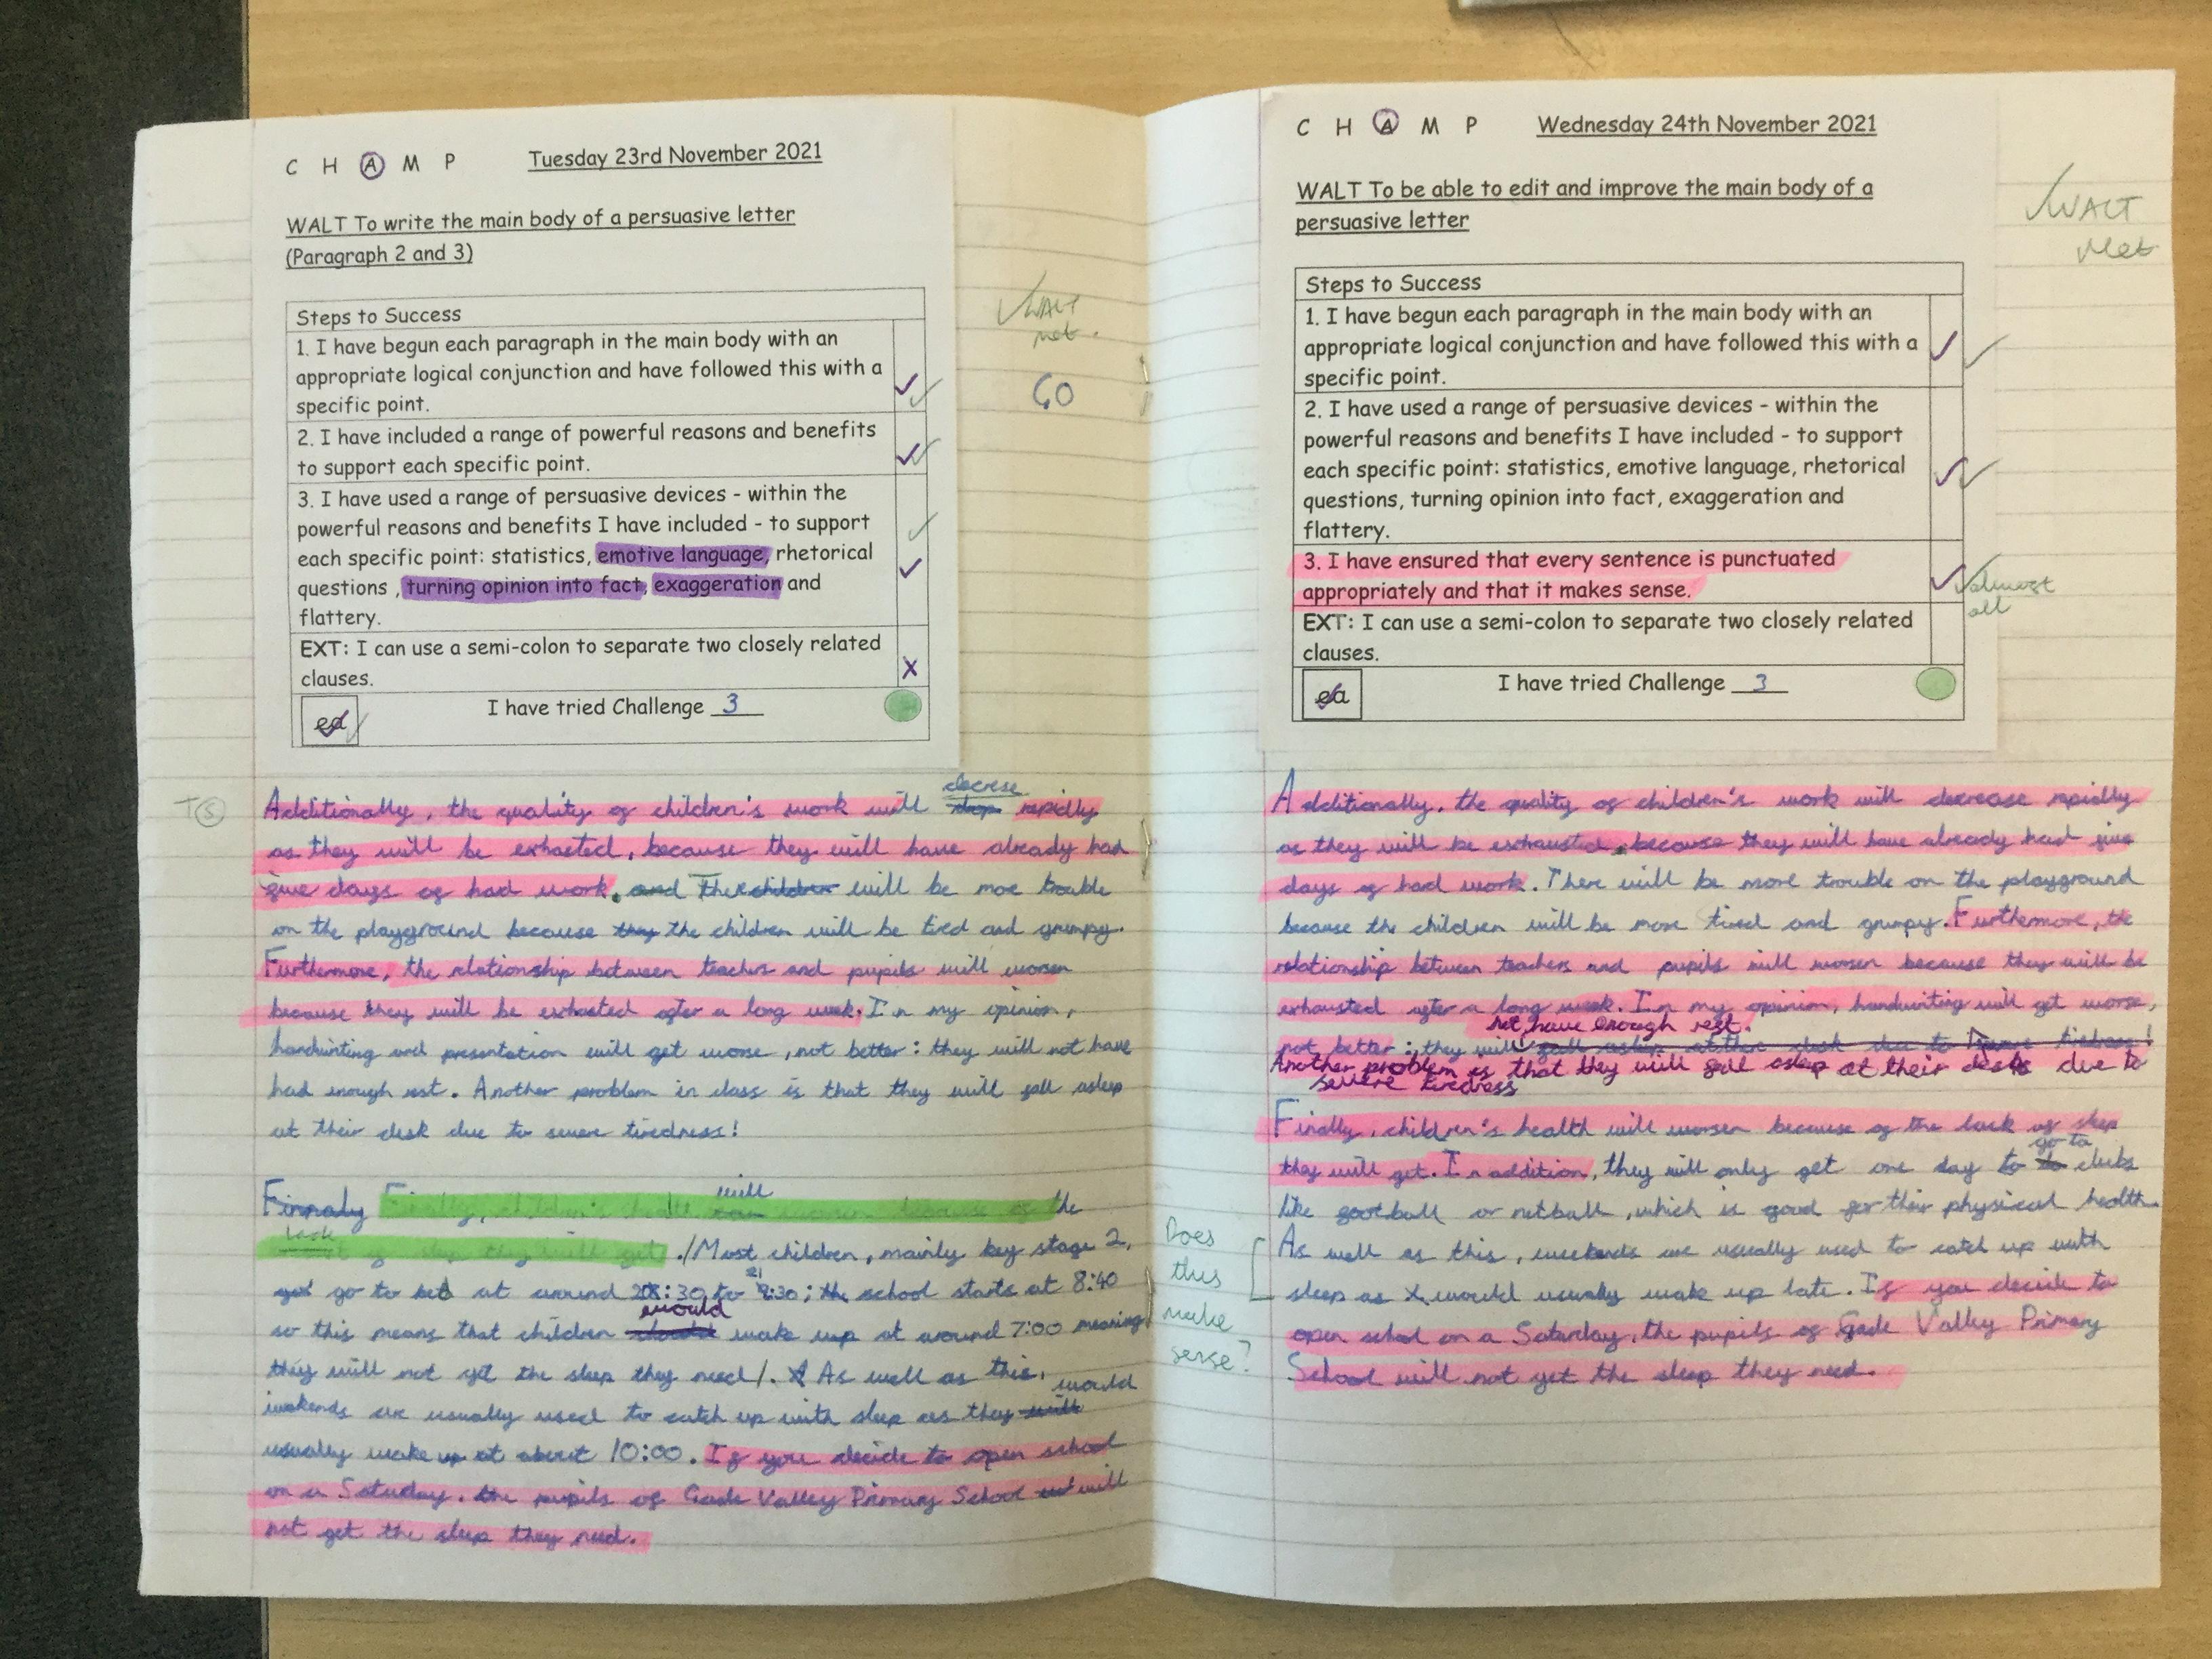 C H A M P Tuesday 23rd November 2021
WALT To write the main body of a persuasive letter
(Paragraph 2 and 3)
Steps to Success
1. I have begun each paragraph in the main body with an
appropriate logical conjunction and have followed this with a
specific point.
2. I have included a range of powerful reasons and benefits
to support each specific point.
3. I have used a range of persuasive devices - within the
powerful reasons and benefits I have included - to support
each specific point: statistics, emotive language, rhetorical
questions , turning opinion into fact, exaggeration and
flattery.
EXT: I can use a semi-colon to separate two closely related
clauses.
ea I have tried Challenge 3
WALT
met.
T S
decrese
Additionally, the quality of children's work will drop rapidly
as they will be exhasted, because they will have already had
five days of hard work. and There children will be moe trouble
on the playground because they the children will be tired and grumpy.
Furthermore, the relationship between teachers and pupils will worsen
because they will be exhasted after a long week. In my opinion,
handwriting and presentation will get worse, not better: they will not have
had enough rest. Another problem in class is that they will fall asleep
at their desk due to severe tiredness!
will
Finnaly Finally, children's health worsen because of the
lack
of sleep they will get. /Most children, mainly key stage 2,
go to bed at around 8:30 to 9:30; the school starts at 8:40
would
so this means that children should wake up at around 7:00 meaning
they will not get the sleep they need/. As well as this,
would
wekends are usually used to catch up with sleep as they will
usually wake up at about 10:00. If you decide to open school
on a Saturday, the pupils of Gade Valley Primary School will
not get the sleep they need.
C H A M P Wednesday 24th November 2021
WALT To be able to edit and improve the main body of a
persuasive letter
Steps to Success
1. I have begun each paragraph in the main body with an
appropriate logical conjunction and have followed this with a
specific point.
2. I have used a range of persuasive devices - within the
powerful reasons and benefits I have included - to support
each specific point: statistics, emotive language, rhetorical
questions, turning opinion into fact, exaggeration and
flattery.
3. I have ensured that every sentence is punctuated
appropriately and that it makes sense.
EXT: I can use a semi-colon to separate two closely related
clauses.
ea I have tried Challenge 3
WALT
Met
almost
all
Additionally, the quality of children's work will decrease rapidly
as they will be exhausted, because they will have already had five
days of hard work. There will be more trouble on the playground
because the children will be more tired and grumpy. Furthermore, the
relationship between teachers and pupils will worsen because they will be
exhausted after a long week. In my opinion, handwriting will get worse,
not have enough rest.
not better: they will fall asleep at their desk due to severe tiredness!
Another problem is that they will fall asleep at their desk due to
severe tiredness
Finally, children's health will worsen because of the lack of sleep
they will get. In addition, they will only get one day to go to clubs
like football or netball, which is good for their physical health.
As well as this, weekends are usually used to catch up with
sleep as I would usually wake up late. If you decide to
open school on a Saturday, the pupils of Gade Valley Primary
School will not get the sleep they need.
Does
this
make
sense?